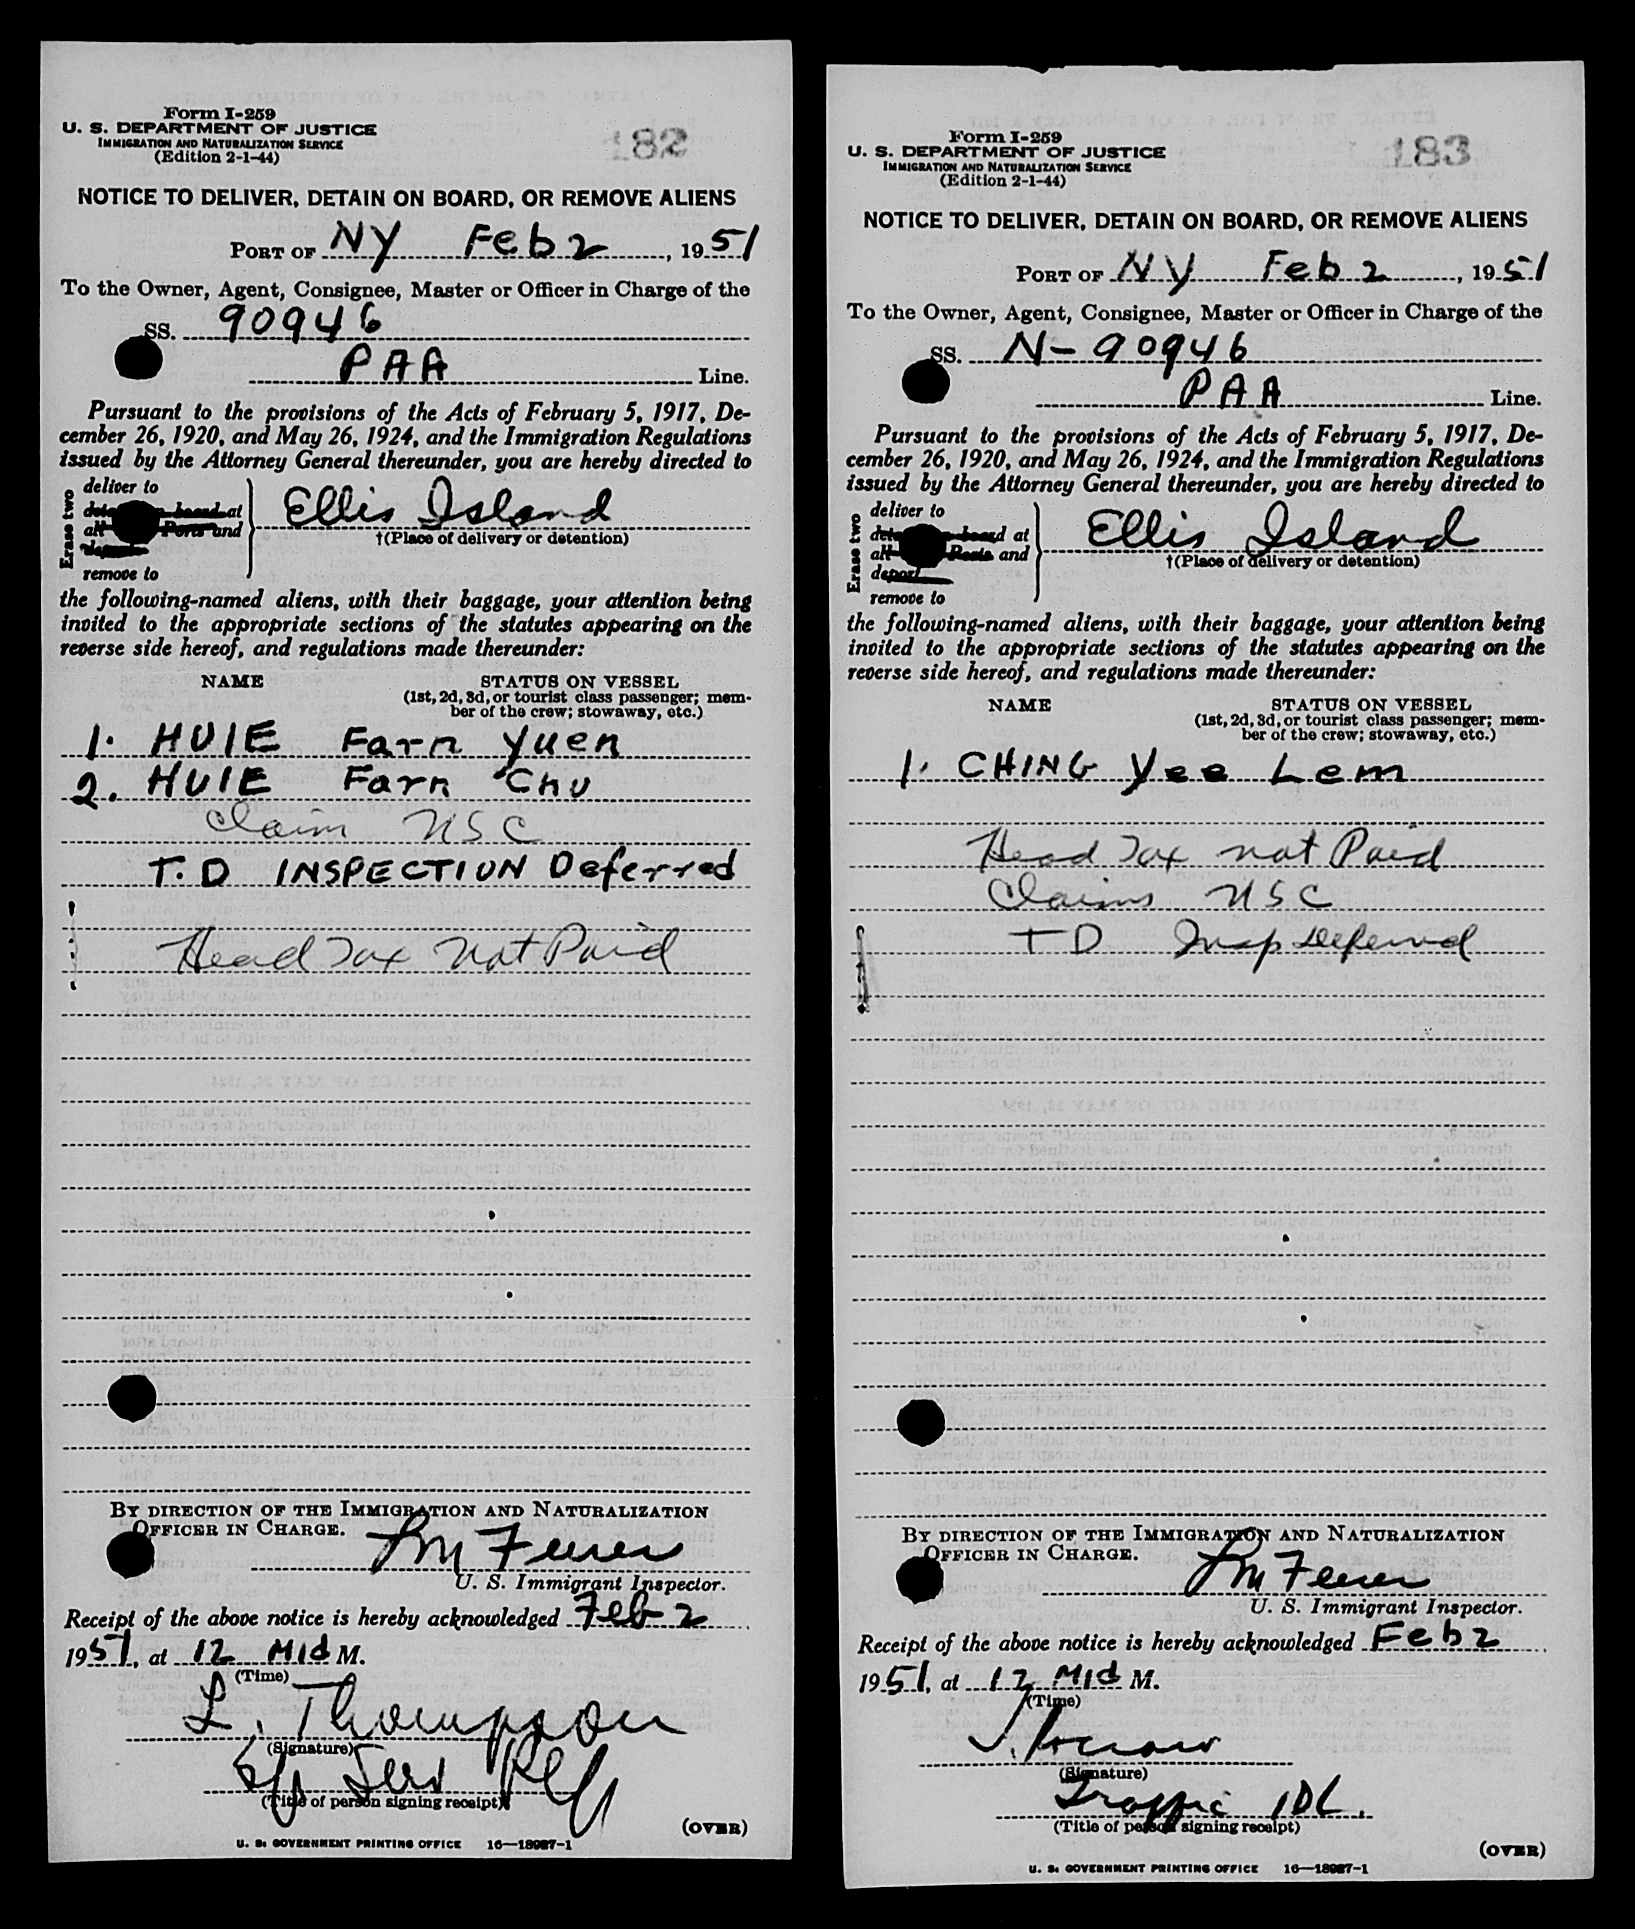 Form I-259
U. S. DEPARTMENT OF JUSTICE
IMMIGRATION AND NATURALIZATION SERVICE
(Edition 2-1-44)
182
NOTICE TO DELIVER, DETAIN ON BOARD, OR REMOVE ALIENS
PORT OF NY Feb 2, 1951
To the Owner, Agent, Consignee, Master or Officer in Charge of the
SS. 90946
PAA Line.
Pursuant to the provisions of the Acts of February 5, 1917, De-
cember 26, 1920, and May 26, 1924, and the Immigration Regulations
issued by the Attorney General thereunder, you are hereby directed to
Erase two
deliver to
board at
all Ports and
remove to
Ellis Island
†(Place of delivery or detention)
the following-named aliens, with their baggage, your attention being
invited to the appropriate sections of the statutes appearing on the
reverse side hereof, and regulations made thereunder:
NAME STATUS ON VESSEL
(1st, 2d, 3d, or tourist class passenger; mem-
ber of the crew; stowaway, etc.)
1. HUIE Farn Yuen
2. HUIE Farn Chu
Claim USC
T.D INSPECTION Deferred
Head Tax Not Paid
BY DIRECTION OF THE IMMIGRATION AND NATURALIZATION
OFFICER IN CHARGE.
U. S. Immigrant Inspector.
Receipt of the above notice is hereby acknowledged Feb 2
1951, at 12 Mid M.
(Time)
L. Thompson
(Signature)
Serv
(Title of person signing receipt)
(OVER)
U. S. GOVERNMENT PRINTING OFFICE 16—18987-1
Form I-259
U. S. DEPARTMENT OF JUSTICE
IMMIGRATION AND NATURALIZATION SERVICE
(Edition 2-1-44)
183
NOTICE TO DELIVER, DETAIN ON BOARD, OR REMOVE ALIENS
PORT OF NY Feb 2, 1951
To the Owner, Agent, Consignee, Master or Officer in Charge of the
SS. N-90946
PAA Line.
Pursuant to the provisions of the Acts of February 5, 1917, De-
cember 26, 1920, and May 26, 1924, and the Immigration Regulations
issued by the Attorney General thereunder, you are hereby directed to
Erase two
deliver to
board at
all Ports and
deport
remove to
Ellis Island
†(Place of delivery or detention)
the following-named aliens, with their baggage, your attention being
invited to the appropriate sections of the statutes appearing on the
reverse side hereof, and regulations made thereunder:
NAME STATUS ON VESSEL
(1st, 2d, 3d, or tourist class passenger; mem-
ber of the crew; stowaway, etc.)
1. CHING Yee Lem
Head Tax not Paid
Claims USC
TD Insp Deferred
BY DIRECTION OF THE IMMIGRATION AND NATURALIZATION
OFFICER IN CHARGE.
U. S. Immigrant Inspector.
Receipt of the above notice is hereby acknowledged Feb 2
1951, at 12 Mid M.
(Time)
(Signature)
Traffic IDL.
(Title of person signing receipt)
(OVER)
U. S. GOVERNMENT PRINTING OFFICE 16—18987-1